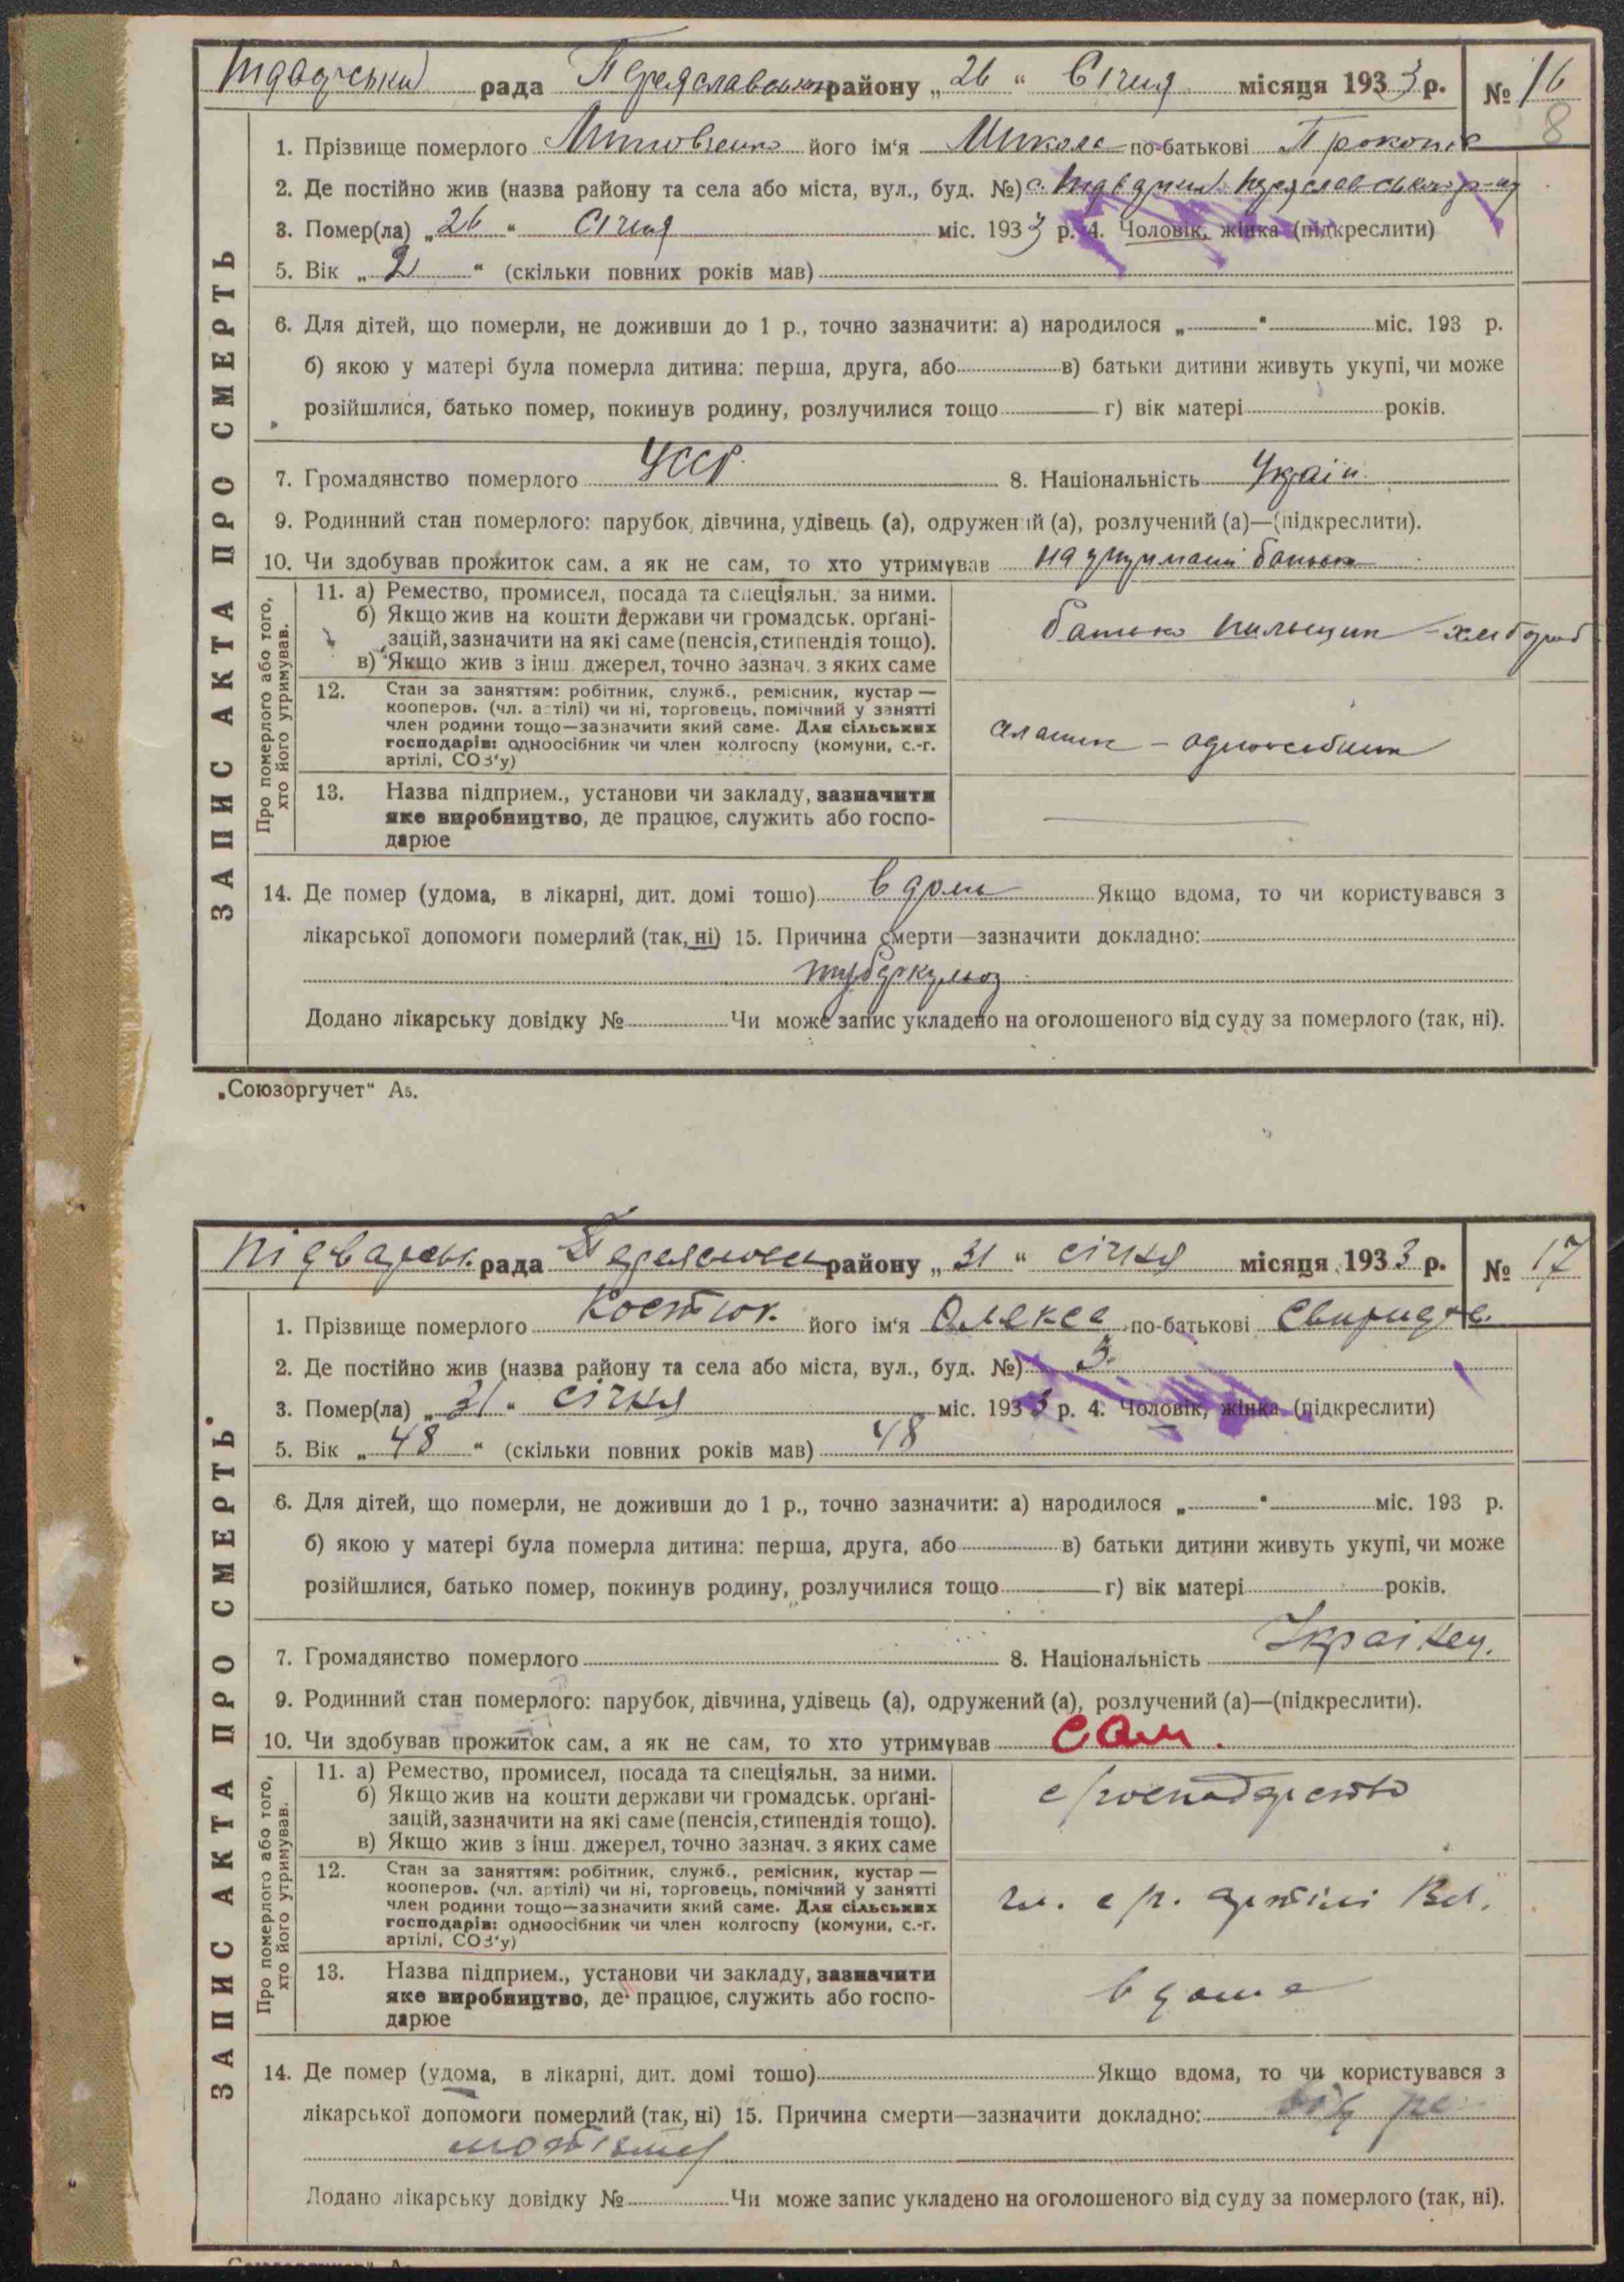 рада Переяславськ району „ 26 “ Січня місяця 1933 р. № 16
8
1. Прізвище померлого його ім'я Микола по-батькові Прокопів
2. Де постійно жив (назва району та села або міста, вул., буд. №) с.
3. Помер(ла) „ 26 “ Січня міс. 1933 р. 4. Чоловік, жінка (підкреслити)
5. Вік „ 2 “ (скільки повних років мав)
6. Для дітей, що померли, не доживши до 1 р., точно зазначити: а) народилося „ “ міс. 193 р.
б) якою у матері була померла дитина: перша, друга, або в) батьки дитини живуть укупі, чи може
розійшлися, батько помер, покинув родину, розлучилися тощо г) вік матері років.
7. Громадянство померлого УССР. 8. Національність Україн.
9. Родинний стан померлого: парубок, дівчина, удівець (а), одружений (а), розлучений (а)—(підкреслити).
10. Чи здобував прожиток сам, а як не сам, то хто утримував на утриманні батька
ЗАПИС АКТА ПРО СМЕРТЬ
Про померлого або того, хто його утримував.
11. а) Ремество, промисел, посада та спеціяльн. за ними.
б) Якщо жив на кошти держави чи громадськ. орґані-
зацій, зазначити на які саме (пенсія, стипендія тощо).
в) Якщо жив з інш. джерел, точно зазнач. з яких саме
батько хлібороб
12. Стан за заняттям: робітник, служб., ремісник, кустар —
кооперов. (чл. артілі) чи ні, торговець, помічний у занятті
член родини тощо—зазначити який саме. Для сільських
господарів: одноосібник чи член колгоспу (комуни, с.-г.
артілі, СОЗ'у)
одноосібник
13. Назва підприєм., установи чи закладу, зазначити
яке виробництво, де працює, служить або госпо-
дарює
14. Де помер (удома, в лікарні, дит. домі тощо) вдома Якщо вдома, то чи користувався з
лікарської допомоги померлий (так, ні) 15. Причина смерти—зазначити докладно:
туберкульоз
Додано лікарську довідку № Чи може запис укладено на оголошеного від суду за померлого (так, ні).
„Союзоргучет“ А5.
Підварськ. рада району „ 31 “ січня місяця 1933 р. № 17
1. Прізвище померлого Костюк. його ім'я Олекса по-батькові Свиридів.
2. Де постійно жив (назва району та села або міста, вул., буд. №) З.
3. Помер(ла) „ 31 “ січня міс. 1933 р. 4. Чоловік, жінка (підкреслити)
5. Вік „ 48 “ (скільки повних років мав) 48
6. Для дітей, що померли, не доживши до 1 р., точно зазначити: а) народилося „ “ міс. 193 р.
б) якою у матері була померла дитина: перша, друга, або в) батьки дитини живуть укупі, чи може
розійшлися, батько помер, покинув родину, розлучилися тощо г) вік матері років.
7. Громадянство померлого 8. Національність Українец.
9. Родинний стан померлого: парубок, дівчина, удівець (а), одружений (а), розлучений (а)—(підкреслити).
10. Чи здобував прожиток сам, а як не сам, то хто утримував сам.
ЗАПИС АКТА ПРО СМЕРТЬ
Про померлого або того, хто його утримував.
11. а) Ремество, промисел, посада та спеціяльн. за ними.
б) Якщо жив на кошти держави чи громадськ. орґані-
зацій, зазначити на які саме (пенсія, стипендія тощо).
в) Якщо жив з інш. джерел, точно зазнач. з яких саме
с/господарство
12. Стан за заняттям: робітник, служб., ремісник, кустар —
кооперов. (чл. артілі) чи ні, торговець, помічний у занятті
член родини тощо—зазначити який саме. Для сільських
господарів: одноосібник чи член колгоспу (комуни, с.-г.
артілі, СОЗ'у)
чл. с/г. артілі
13. Назва підприєм., установи чи закладу, зазначити
яке виробництво, де працює, служить або госпо-
дарює
вдома
14. Де помер (удома, в лікарні, дит. домі тощо) Якщо вдома, то чи користувався з
лікарської допомоги померлий (так, ні) 15. Причина смерти—зазначити докладно: від ре
Додано лікарську довідку № Чи може запис укладено на оголошеного від суду за померлого (так, ні).